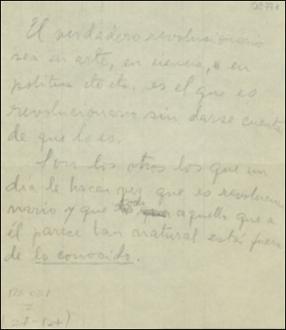 El verdadero revolucionario
sea en arte, en ciencia, o en
politica etc etc. es el que es
revolucionario sin darse cuenta
de que lo es.
Son los otros los que un
dia le hacen ver que es revolucio
nario y que todo aquello que a
él parece tan natural está fuera
de lo conocido.